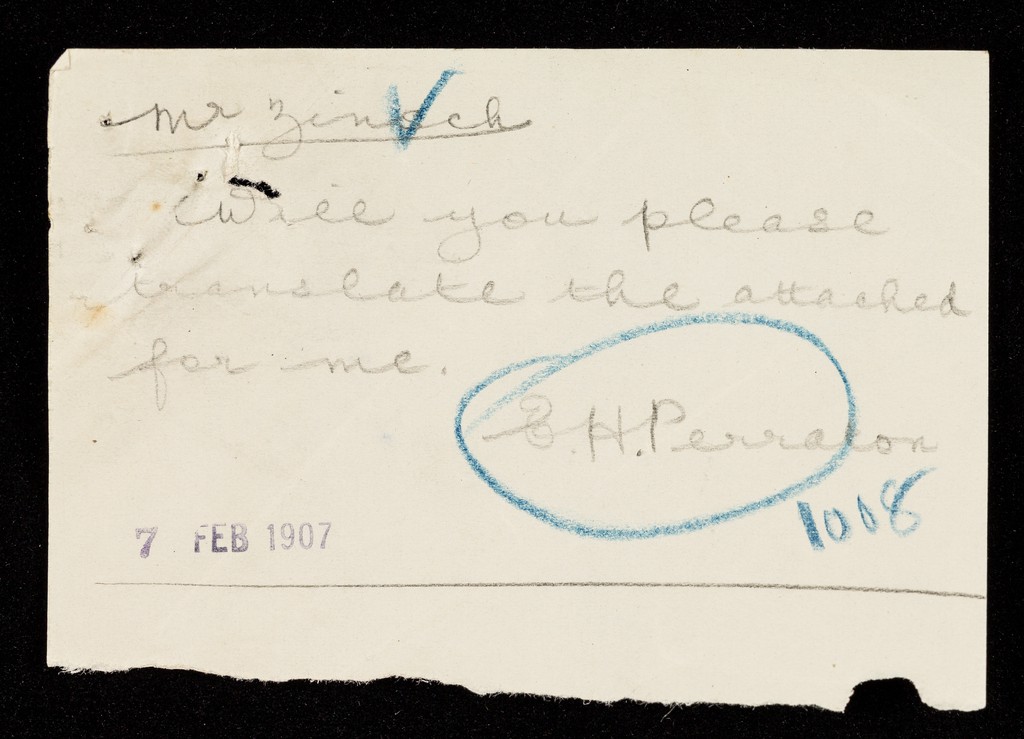 Mr Zinsch
Will you please
translate the attached
for me.
E. H. Perraton
1008
7 FEB 1907